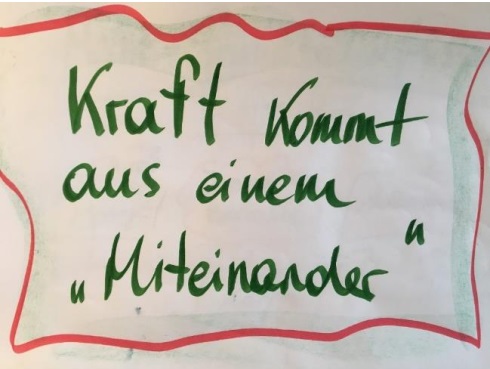 Kraft kommt
aus einem
„Miteinander"